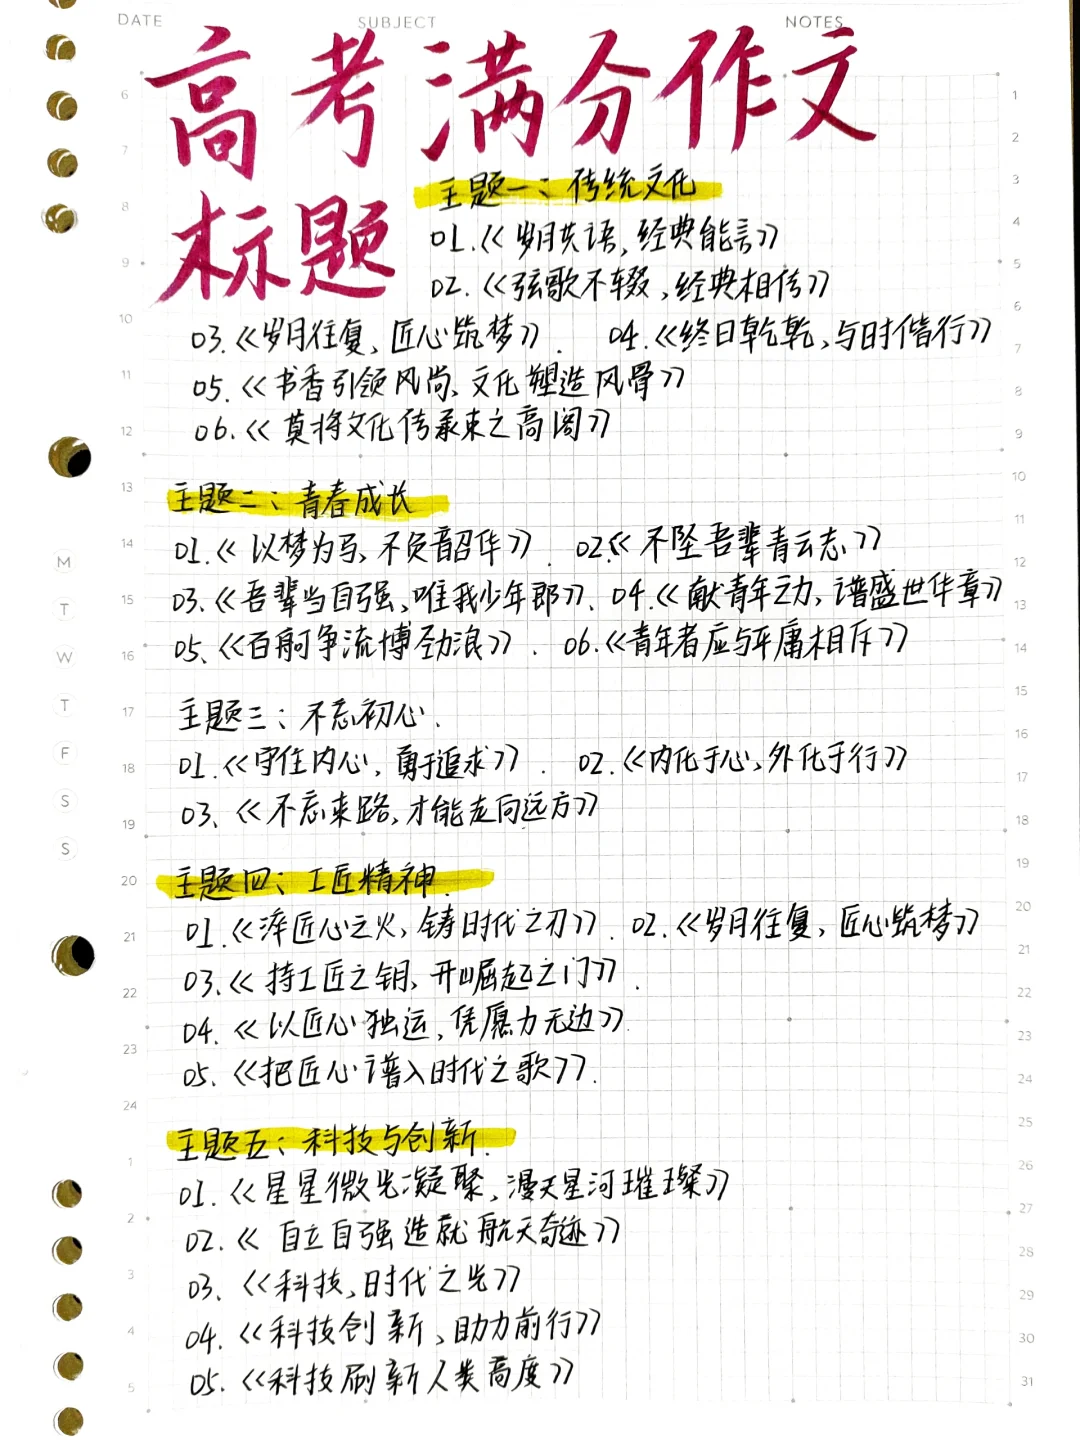 DATE SUBJECT NOTES
高考满分作文
标题
主题一：传统文化
01.《岁月失语，经典能言》
02.《弦歌不辍，经典相传》
03.《岁月往复，匠心筑梦》. 04.《终日乾乾，与时偕行》
05.《书香引领风尚，文化塑造风骨》
06.《莫将文化传承束之高阁》
主题二：青春成长
01.《以梦为马，不负韶华》. 02.《不坠吾辈青云志》
03.《吾辈当自强，唯我少年郎》. 04.《献青年之力，谱盛世华章》
05.《百舸争流博劲浪》. 06.《青年者应与平庸相斥》
主题三：不忘初心.
01.《守住内心，勇于追求》. 02.《内化于心，外化于行》
03.《不忘来路，才能走向远方》
主题四：工匠精神.
01.《淬匠心之火，铸时代之刃》. 02.《岁月往复，匠心筑梦》
03.《持工匠之钥，开崛起之门》.
04.《以匠心独运，凭愿力无边》.
05.《把匠心谱入时代之歌》.
主题五：科技与创新.
01.《星星微光凝聚，漫天星河璀璨》
02.《自立自强造就航天奇迹》
03.《科技，时代之光》
04.《科技创新，助力前行》
05.《科技刷新人类高度》
6
7
8
9
10
11
12
13
14
15
16
17
18
19
20
21
22
23
24
1
2
3
4
5
M
T
W
T
F
S
S
1
2
3
4
5
6
7
8
9
10
11
12
13
14
15
16
17
18
19
20
21
22
23
24
25
26
27
28
29
30
31